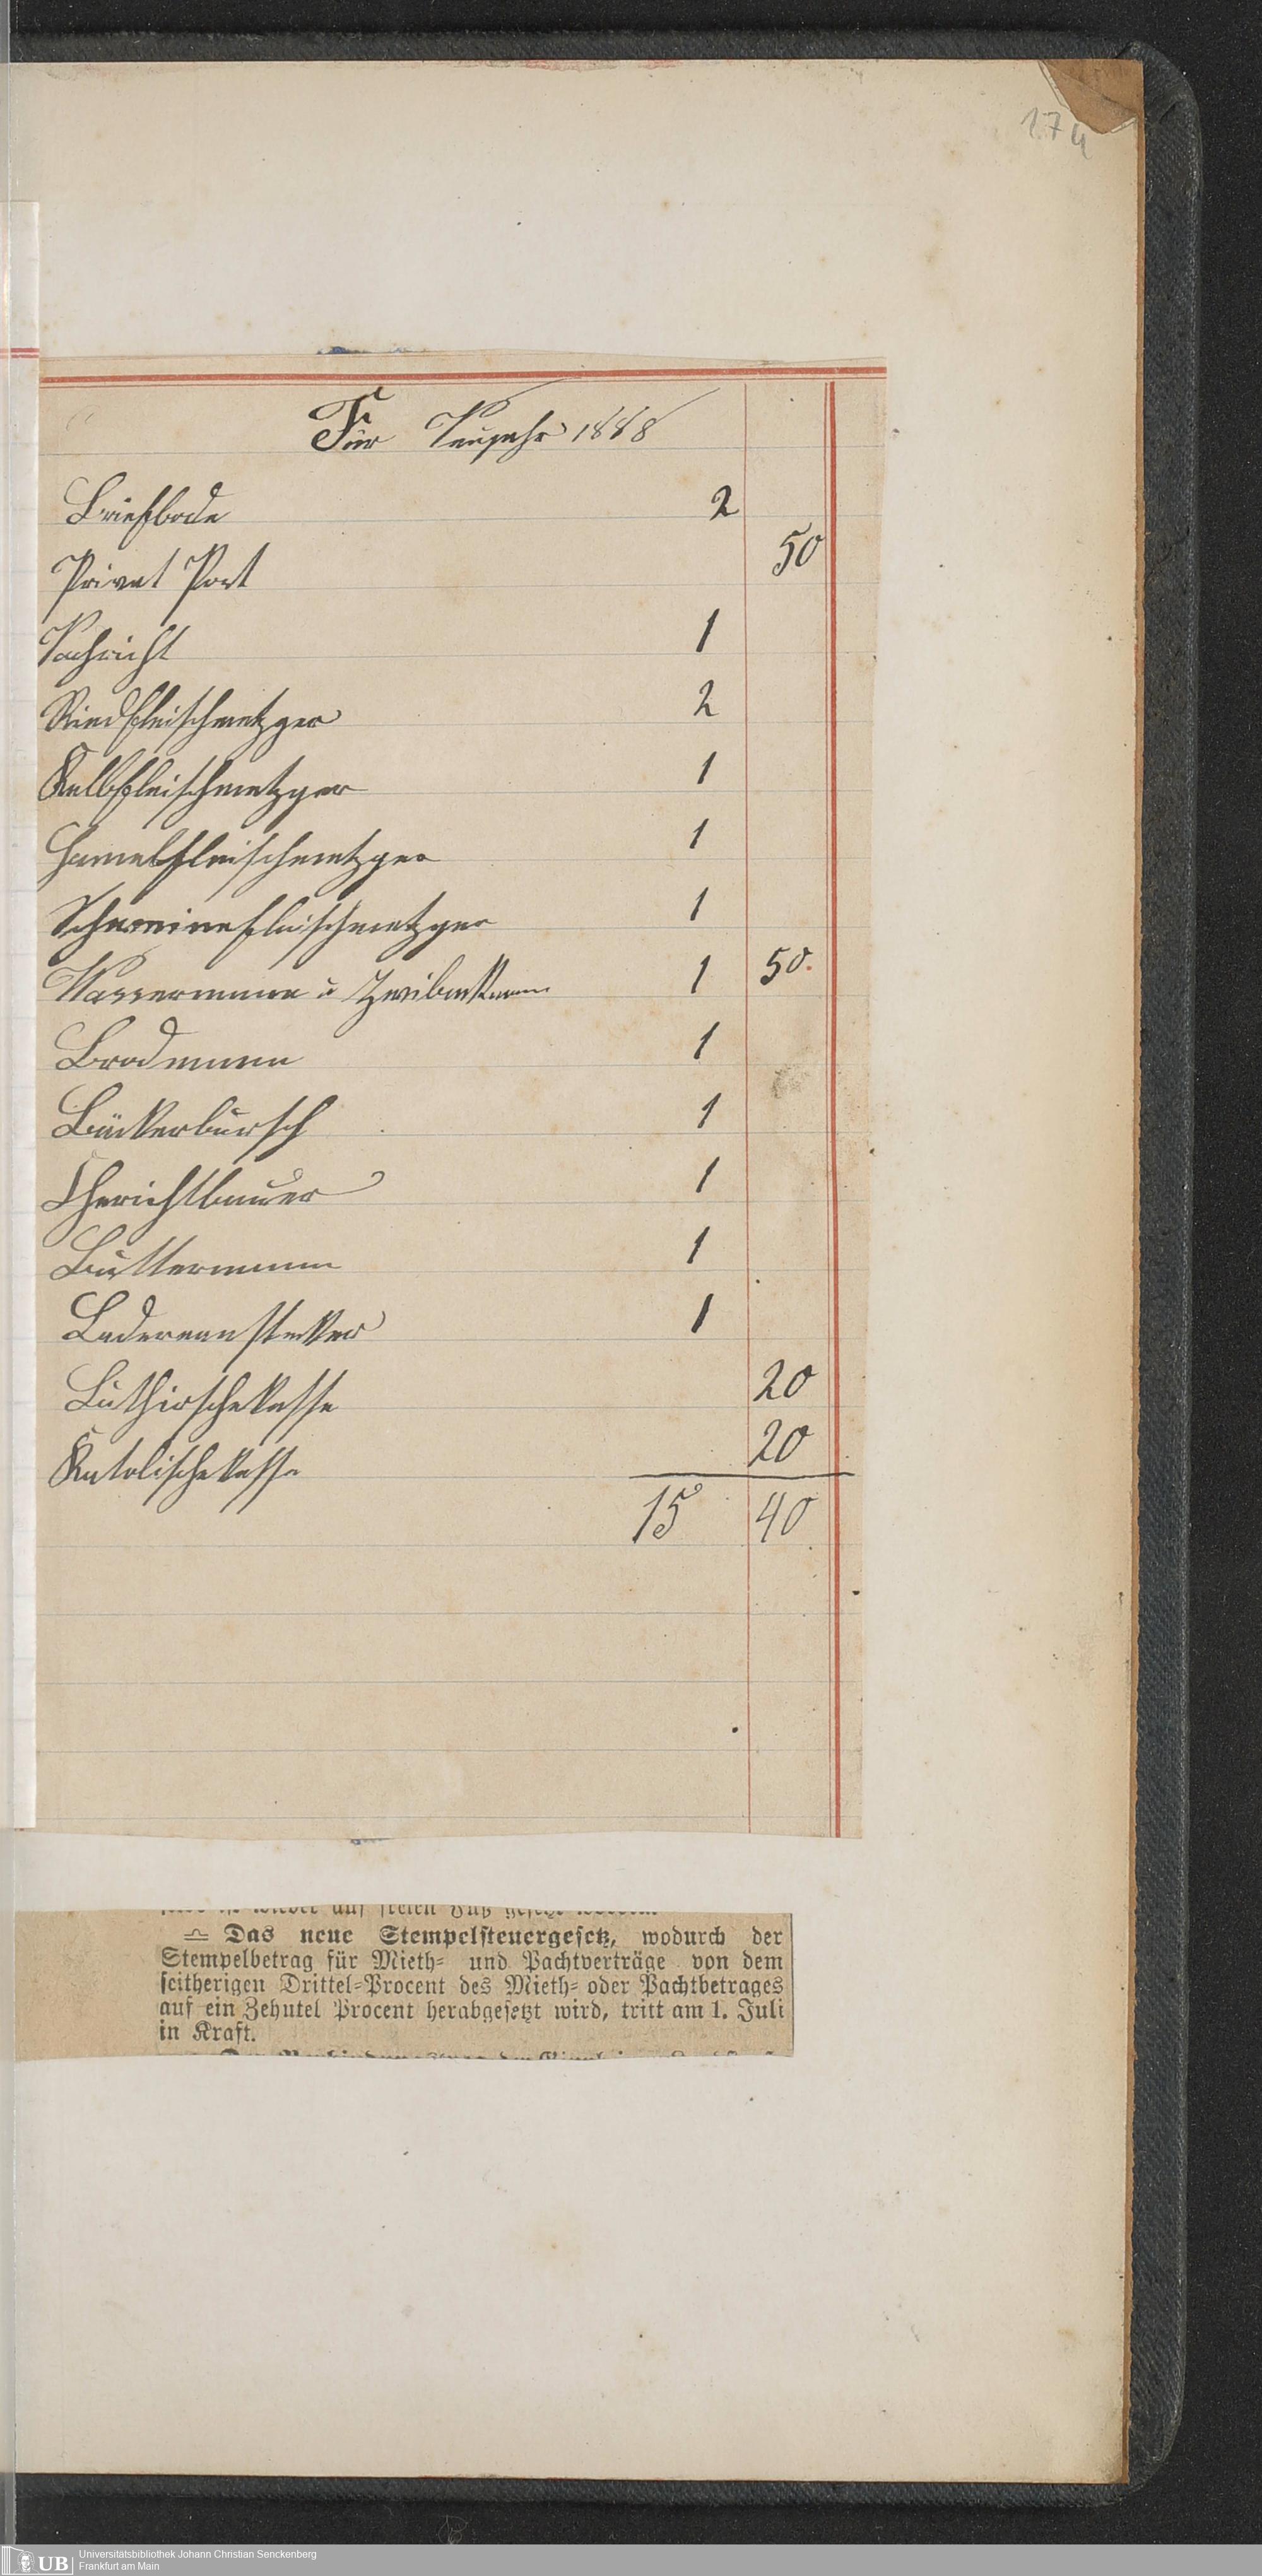 174
Für Neujahr 1888
Briefbode 2
Privat Post 50
Nachricht 1
Rindfleischmetzger 2
Kalbfleischmetzger 1
Hamelfleischmetzger 1
Schweinefleischmetzger 1
Wassermann u 1 50.
Brodmann 1
Bäckerbursch 1
1
Buttermann 1
1
20
Katolischekasse 20
15 40
Das neue Stempelsteuergesetz, wodurch der
Stempelbetrag für Mieth- und Pachtverträge von dem
seitherigen Drittel-Procent des Mieth- oder Pachtbetrages
auf ein Zehntel Procent herabgesetzt wird, tritt am 1. Juli
in Kraft.
UB
Universitätsbibliothek Johann Christian Senckenberg
Frankfurt am Main